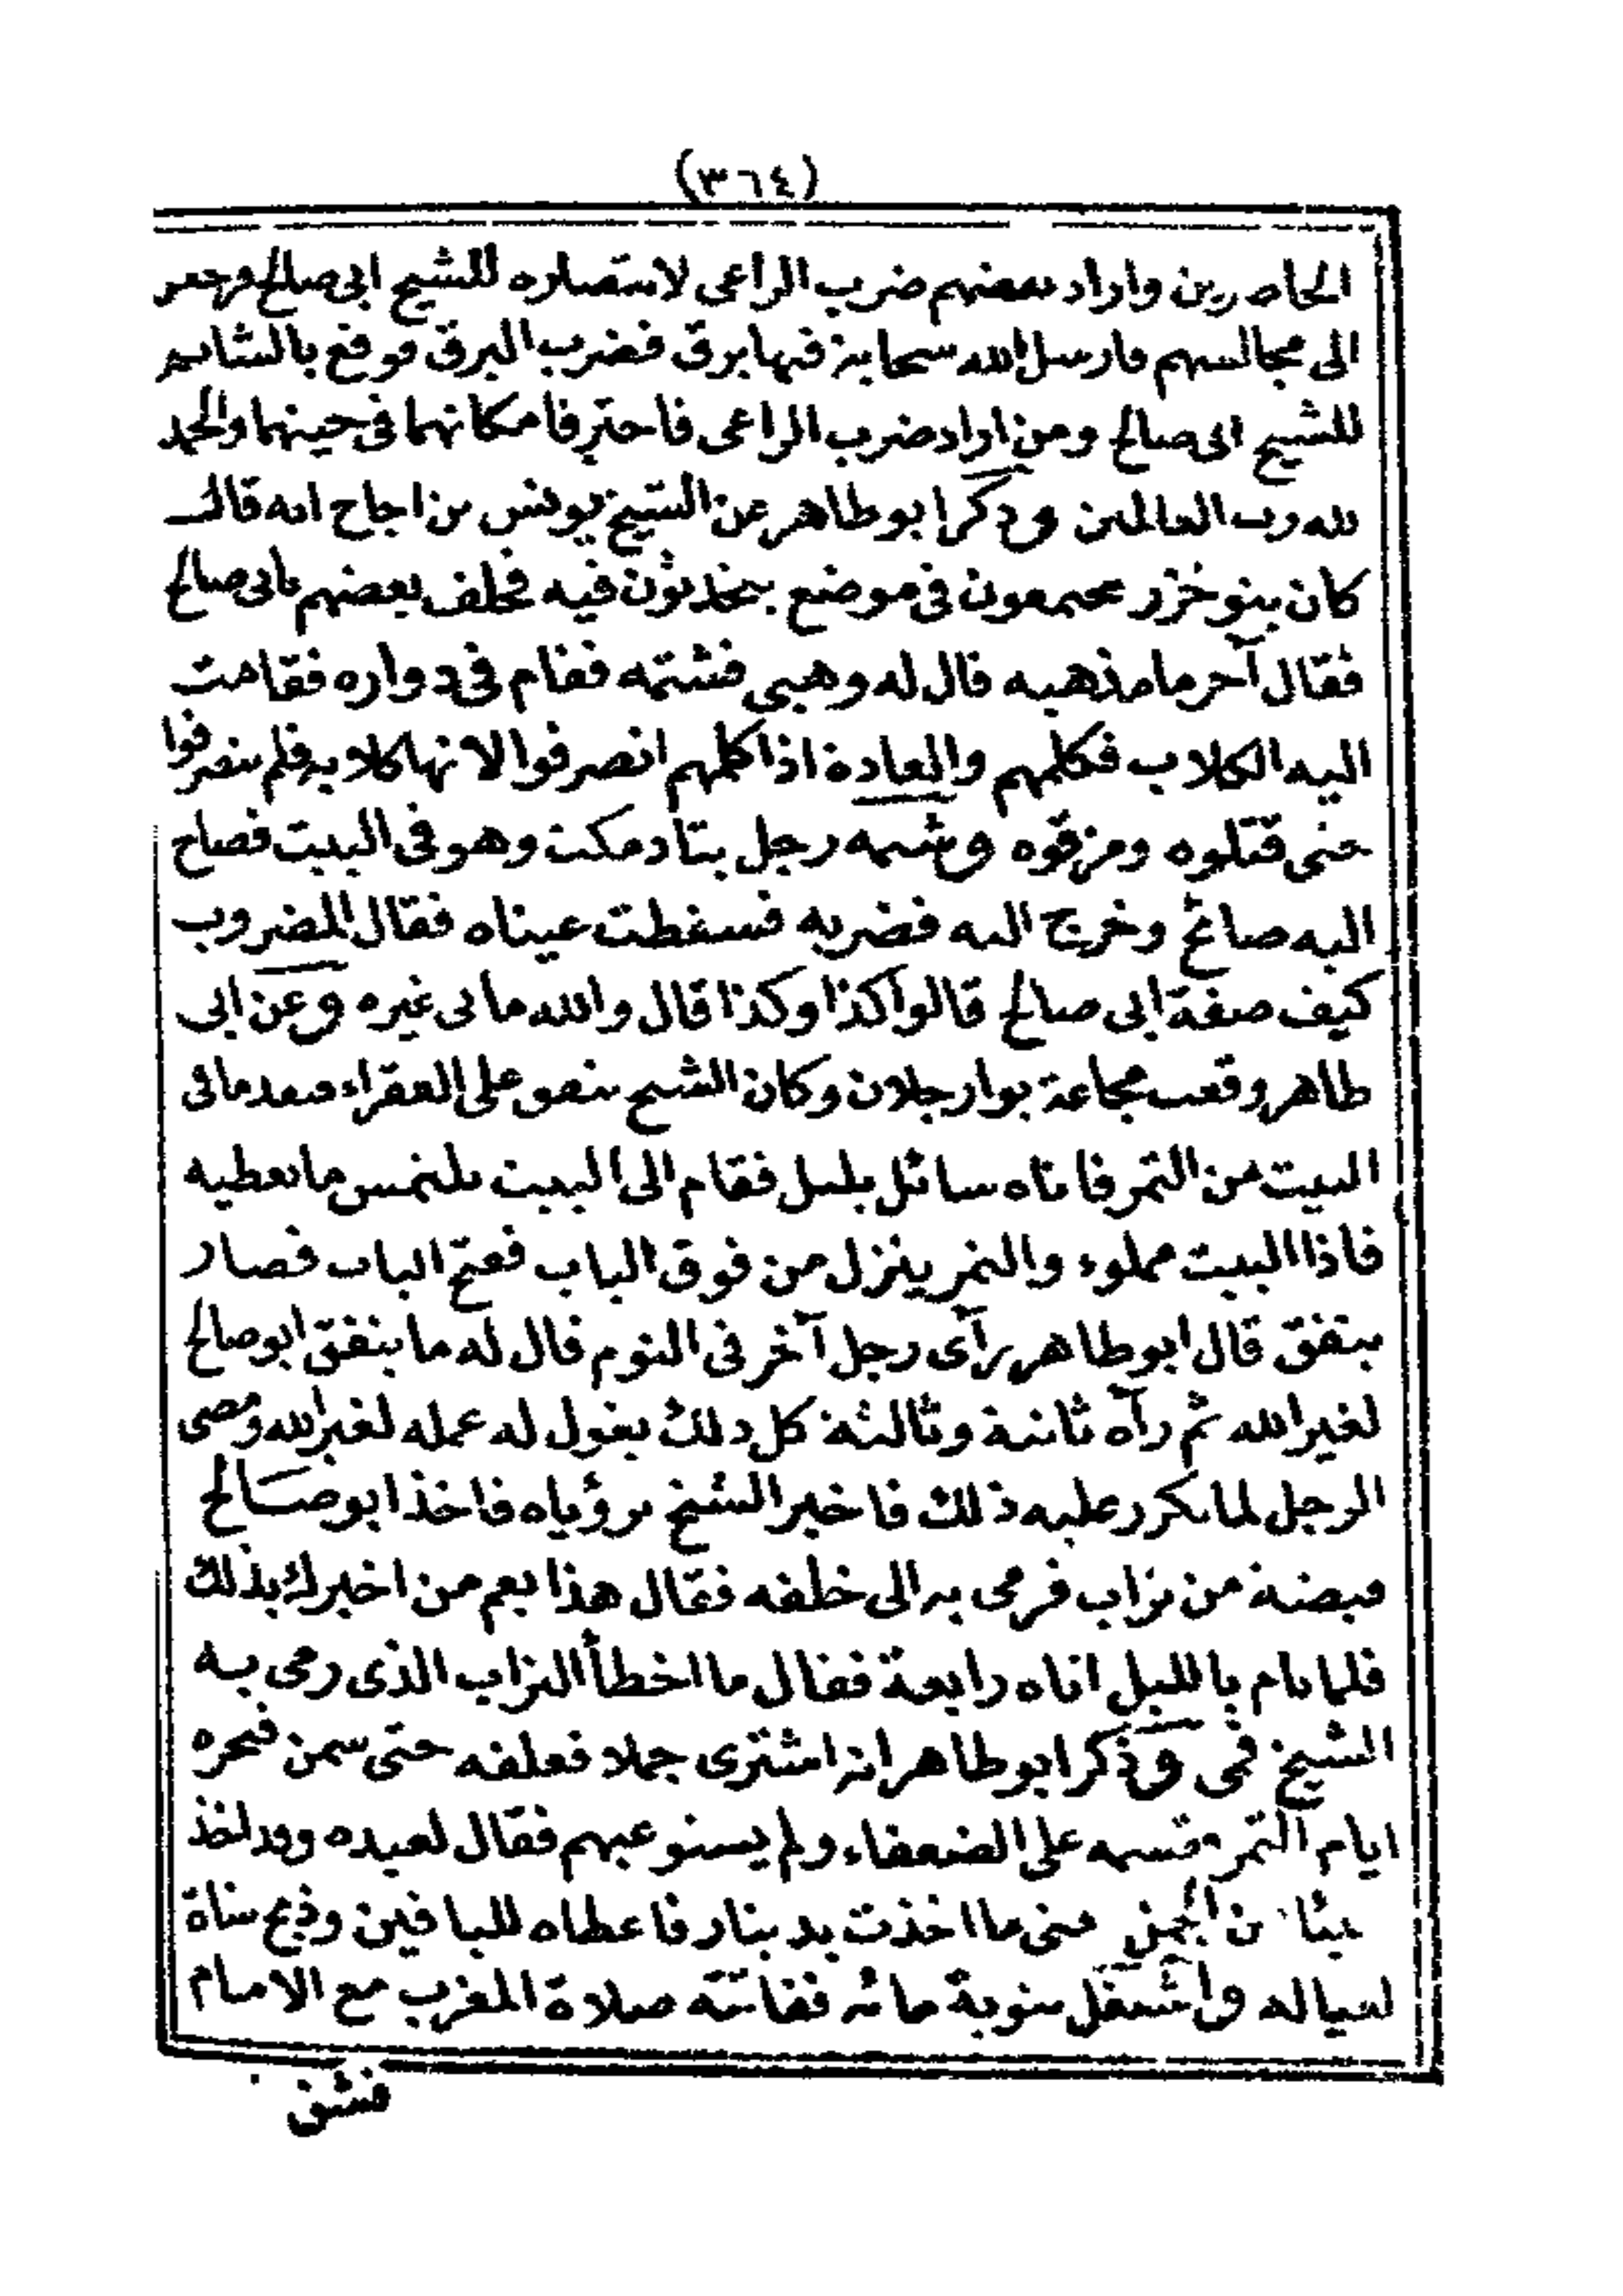 (٣٦٤)
الحاضرين واراد بعضهم ضرب الراعى لاستنصاره للشيخ ابى صالح
الى مجالسهم فارسل الله سحابة فيها برق فضرب البرق فوقع بالشاتم
للشيخ ابى صالح ومن اراد ضرب الراعى فاحترقا مكانهما فى حينهما والحمد
لله رب العالمين وذكر ابو طاهر عن الشيخ يونس بن اجاج انه قال
كان بنو خزر يجتمعون فى موضع يتحدثون فيه فحلف بعضهم بابى صالح
فقال آخر ما مذهبه قال له وهبى فشتمه فقام فى دواره فقامت
اليه الكلاب فكلمهم والعادة اذا كلمهم انصرفوا لانها كلابه فلم ينصرفوا
حتى قتلوه ومزقوه وشتمه رجل بتادمكت وهو فى البيت فصاح
اليه صائح وخرج اليه فضربه فسقطت عيناه فقال المضروب
كيف صفة ابى صالح قالوا كذا وكذا قال والله ما بى غيره وعن ابى
طاهر وقعت مجاعة بوارجلان وكان الشيخ ينفق على الفقراء فنفد ما فى
البيت من التمر فاتاه سائل بليل فقام الى البيت يلتمس ما يعطيه
فاذا البيت مملوء والتمر ينزل من فوق الباب ففتح الباب فصار
ينفق قال ابو طاهر رآى رجل آخر فى النوم قال له ما ينفق ابو صالح
لغير الله ثم رآه ثانية وثالثة كل ذلك يقول له عمله لغير الله ومضى
الرجل لما تكرر عليه ذلك فاخبر الشيخ برؤياه فاخذ ابو صالح
قبضة من تراب فرمى به الى خلفه فقال هذا بفم من اخبرك بذلك
فلما نام بالليل اتاه رابعة فقال ما اخطأ التراب الذى رمى به
الشيخ فمى وذكر ابو طاهر انه اشترى جملا فعلفه حتى سمن فنحره
ايام التمر وقسمه على الضعفاء ولم يستوعبهم فقال لعبيده وقد اخذ
عنى ما اخذت بدينار فاعطاه للباقين وذبح شاة
لعياله واشتغل بنوبة مائه ففاتته صلاة المغرب مع الامام
فشق